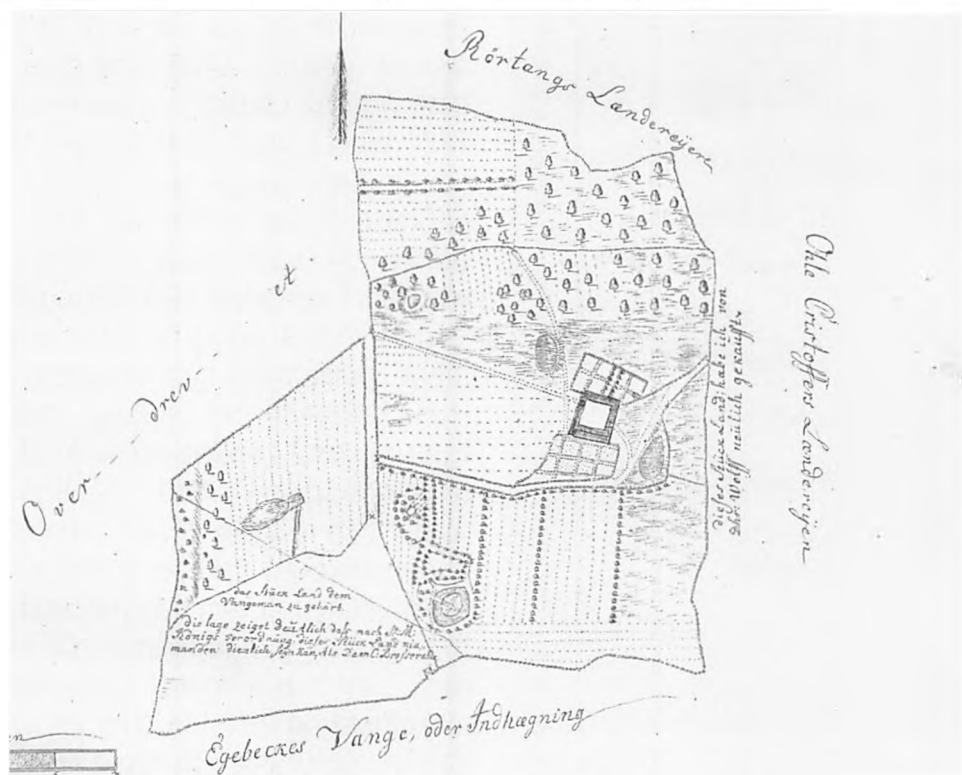 Rörtangs Lændereÿen
Over - drev - et
Ohle Cristoffers Lændereÿen
dieses Stück Land habe ich von
Wolff neülich gekaufft.
das Stück Land dem
Vangeman zu gehört.
die lage zeiget deütlich daß nach
Königs verordnüng dieses Stück Land nie-
manden dienlich seÿn kan, als Dem
Egebeckes Vange, oder Indhægning